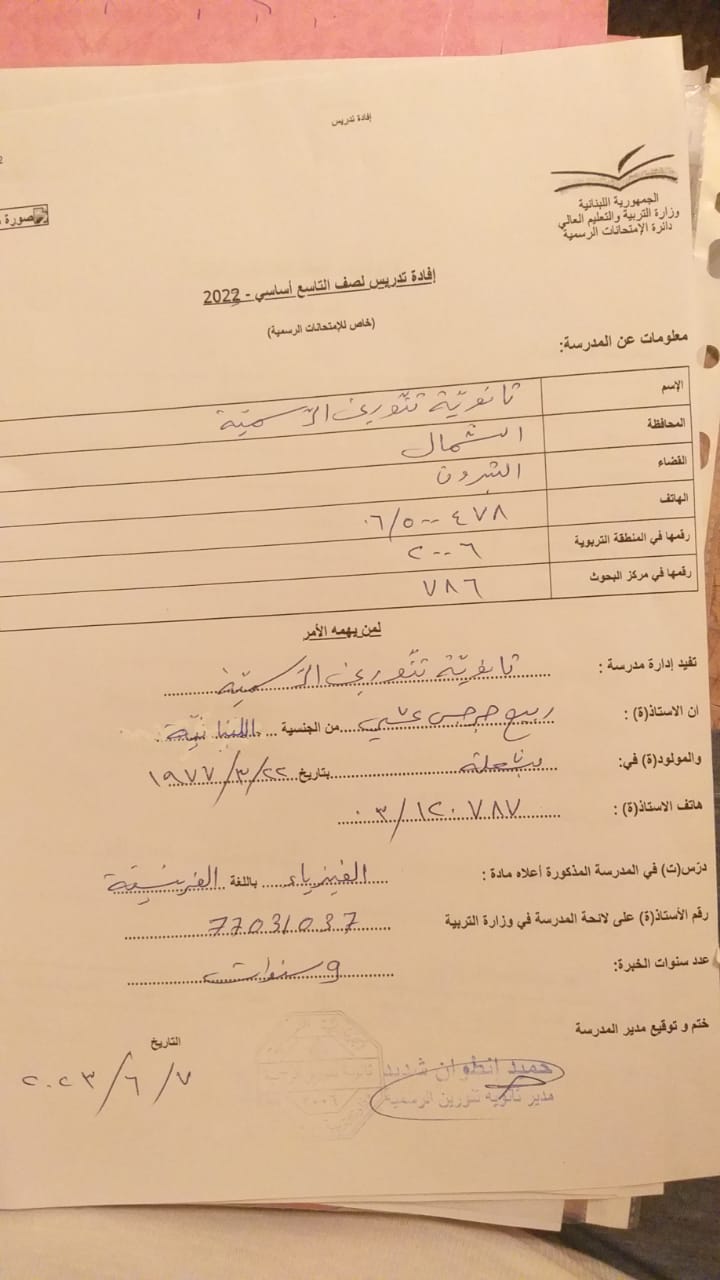 إفادة تدريس
2
صورة
الجمهورية اللبنانية
وزارة التربية والتعليم العالي
دائرة الإمتحانات الرسمية
إفادة تدريس لصف التاسع أساسي - 2022
(خاص للإمتحانات الرسمية)
معلومات عن المدرسة:
الإسم ثانويّة تنّورين الرّسميّة
المحافظة الشمال
القضاء البترون
الهاتف ٠٦/٥٠٠٤٧٨
رقمها في المنطقة التربوية ٢٠٠٦
رقمها في مركز البحوث ٧٨٦
لمن يهمه الأمر
تفيد إدارة مدرسة : ثانويّة تنّورين الرّسميّة
ان الاستاذ(ة) : ربيع جرجس عشي من الجنسية اللبنانيّة
والمولود(ة) في: بشعلة بتاريخ ١٩٧٧/٣/٢٢
هاتف الاستاذ(ة) : ٠٣/١٢٠٧٨٧
درّس(ت) في المدرسة المذكورة أعلاه مادة : الفيزياء باللغة الفرنسيّة
رقم الأستاذ(ة) على لائحة المدرسة في وزارة التربية 77031037
عدد سنوات الخبرة: ٩ سنوات
ختم و توقيع مدير المدرسة
التاريخ
حميد انطوان شديد
مدير ثانوية تنورين الرسمية
٢٠٢٣/٦/٧